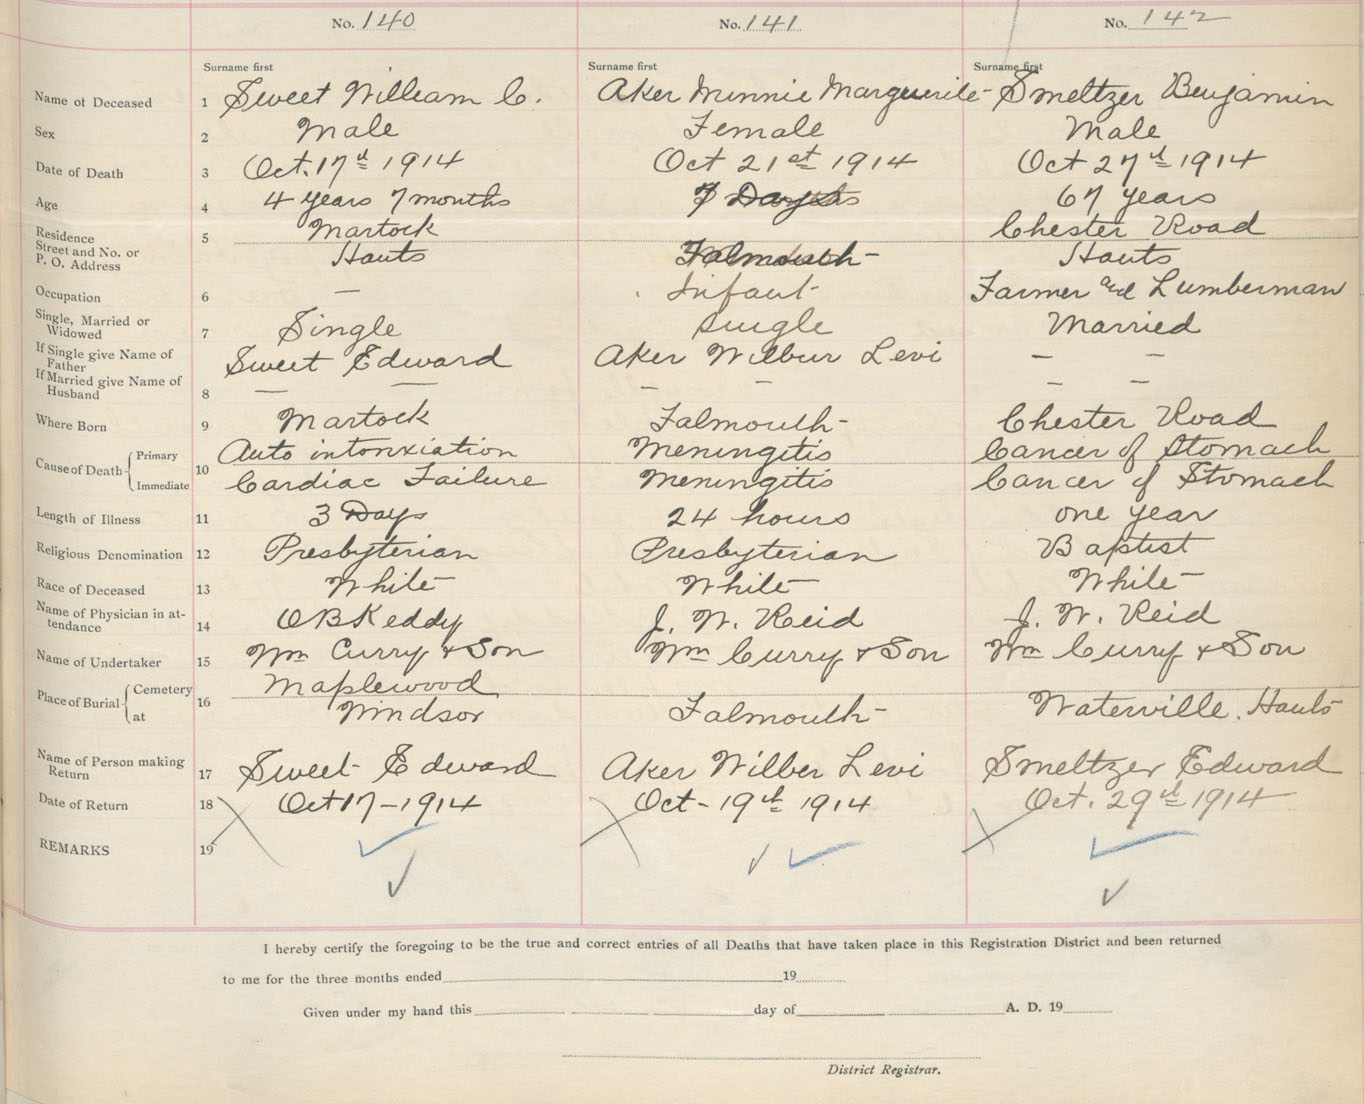 No. 140 No. 141 No. 142
Surname first Surname first Surname first
Name of Deceased 1 Sweet William C. Aker Minnie Marguerite Smeltzer Benjamin
Sex 2 Male Female Male
Date of Death 3 Oct. 17th 1914 Oct 21st 1914 Oct 27th 1914
Age 4 4 years 7 months 7 Days 67 years
Residence 5 Martock Chester Road
Street and No. or P. O. Address Hants Falmouth Hants
Occupation 6 — Infant Farmer and Lumberman
Single, Married or Widowed 7 Single Single Married
If Single give Name of Father Sweet Edward Aker Wilbur Levi — —
If Married give Name of Husband 8 — — — — — —
Where Born 9 Martock Falmouth Chester Road
Cause of Death 10 Primary Auto intonxiation Meningitis Cancer of Stomach
Immediate Cardiac Failure Meningitis Cancer of Stomach
Length of Illness 11 3 Days 24 hours one year
Religious Denomination 12 Presbyterian Presbyterian Baptist
Race of Deceased 13 White White White
Name of Physician in attendance 14 O B Keddy J. W. Reid J. W. Reid
Name of Undertaker 15 Wm Curry & Son Wm Curry & Son Wm Curry & Son
Place of Burial 16 Cemetery Maplewood
at Windsor Falmouth Waterville. Hants
Name of Person making Return 17 Sweet Edward Aker Wilber Levi Smeltzer Edward
Date of Return 18 Oct 17 - 1914 Oct - 19th 1914 Oct. 29th 1914
REMARKS 19
I hereby certify the foregoing to be the true and correct entries of all Deaths that have taken place in this Registration District and been returned
to me for the three months ended 19
Given under my hand this day of A. D. 19
District Registrar.